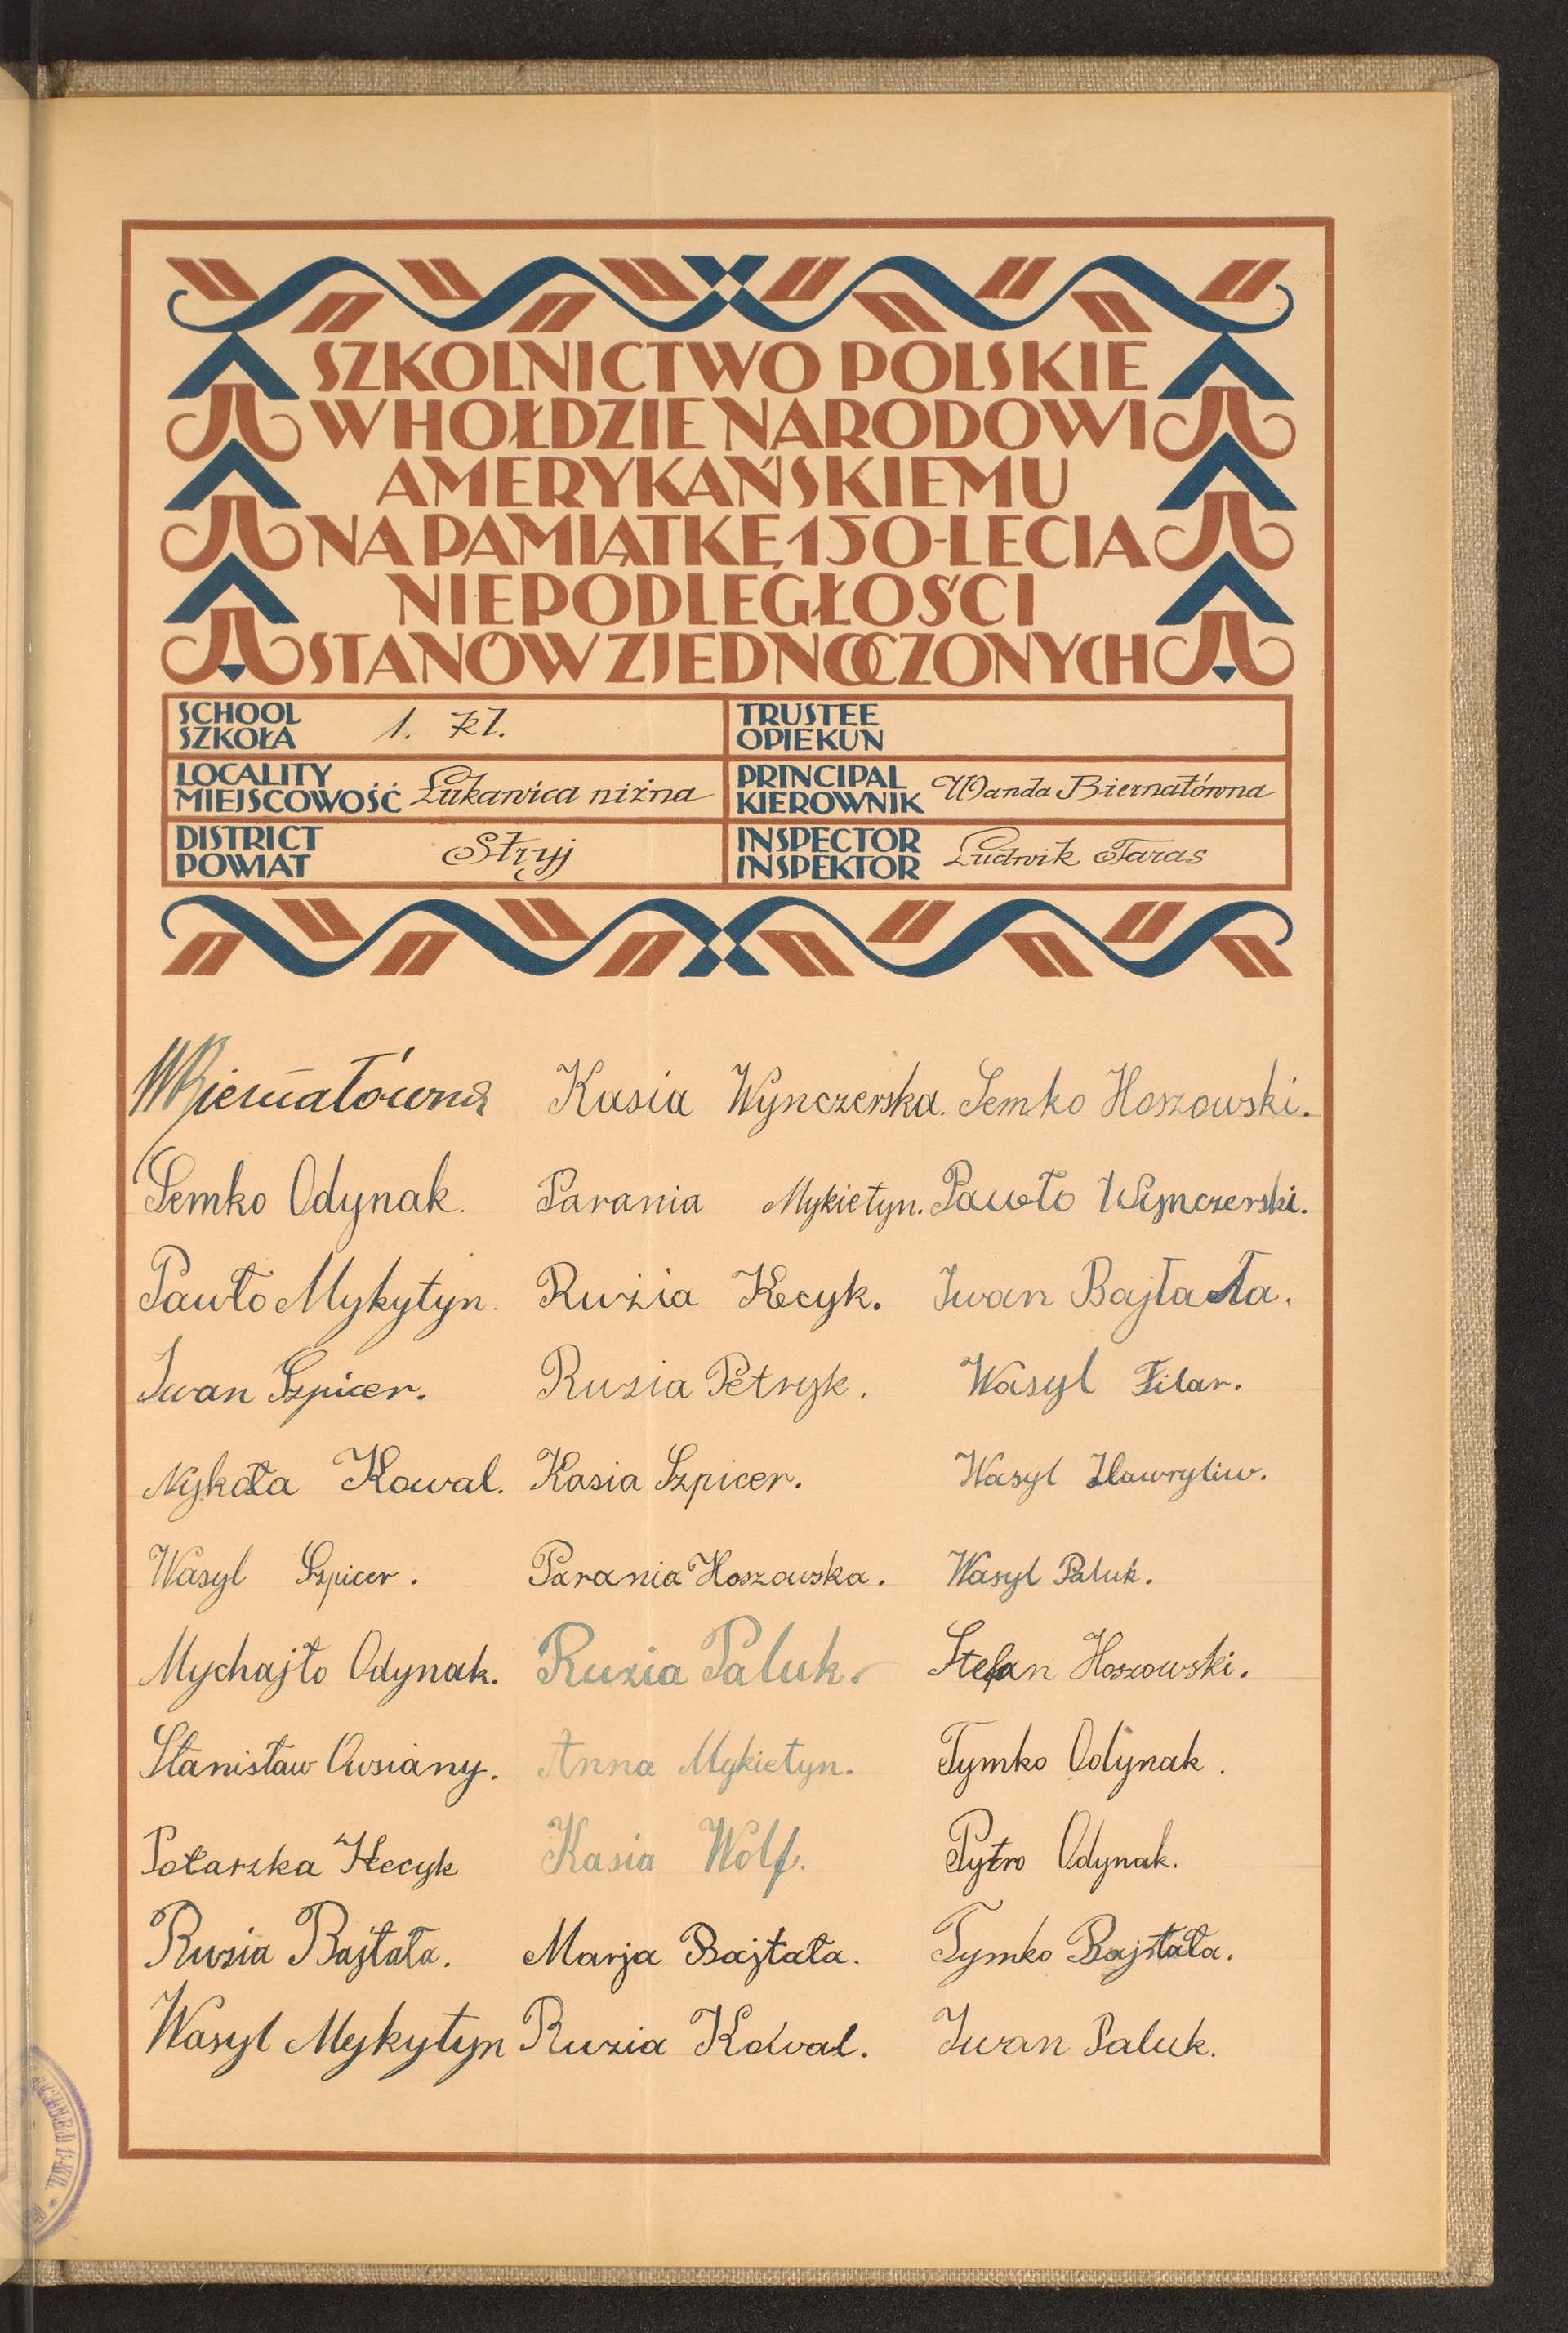 SZKOLNICTWO POLSKIE
W HOŁDZIE NARODOWI
AMERYKAŃSKIEMU
NA PAMIĄTKĘ 150-LECIA
NIEPODLEGŁOŚCI
STANÓW ZJEDNOCZONYCH
SCHOOL
SZKOŁA
1. kl.
TRUSTEE
OPIEKUN
LOCALITY
MIEJSCOWOŚĆ
Łukawica niżna
PRINCIPAL
KIEROWNIK
Wanda Biernatówna
DISTRICT
POWIAT
Stryj
INSPECTOR
INSPEKTOR
Ludwik Taras
WBiernatówna
Kasia Wynczerska.
Semko Hoszowski.
Semko Odynak.
Parania Mykietyn.
Pawło Wynczerski.
Pawło Mykytyn.
Ruzia Kecyk.
Iwan Bajtała.
Iwan Szpicer.
Rusia Petryk.
Wasyl Filar.
Nykoła Kowal.
Kasia Szpicer.
Wasyl Hawryliw.
Wasyl Szpicer.
Parania Hoszowska.
Wasyl Paluk.
Mychajło Odynak.
Ruzia Paluk.
Stefan Hoszowski.
Stanisław Owsiany.
Anna Mykietyn.
Tymko Odynak.
Hecyk
Kasia Wolf.
Pytro Odynak.
Rusia Bajtała.
Marja Bajtała.
Tymko Bajtała.
Wasyl Mykytyn
Ruzia Kowal.
Iwan Paluk.